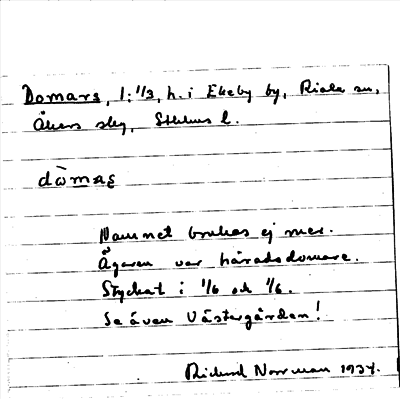 Domars, 1:1/3, h. i Ekeby by, Riala sn,
Åkers sky, Sthlms l.
dòmaʂ
Namnet brukas ej mer.
Ägaren var häradsdomare.
Styckat i 1/6 och 1/6.
Se även Västergården!
Rickard Norrman 1934.